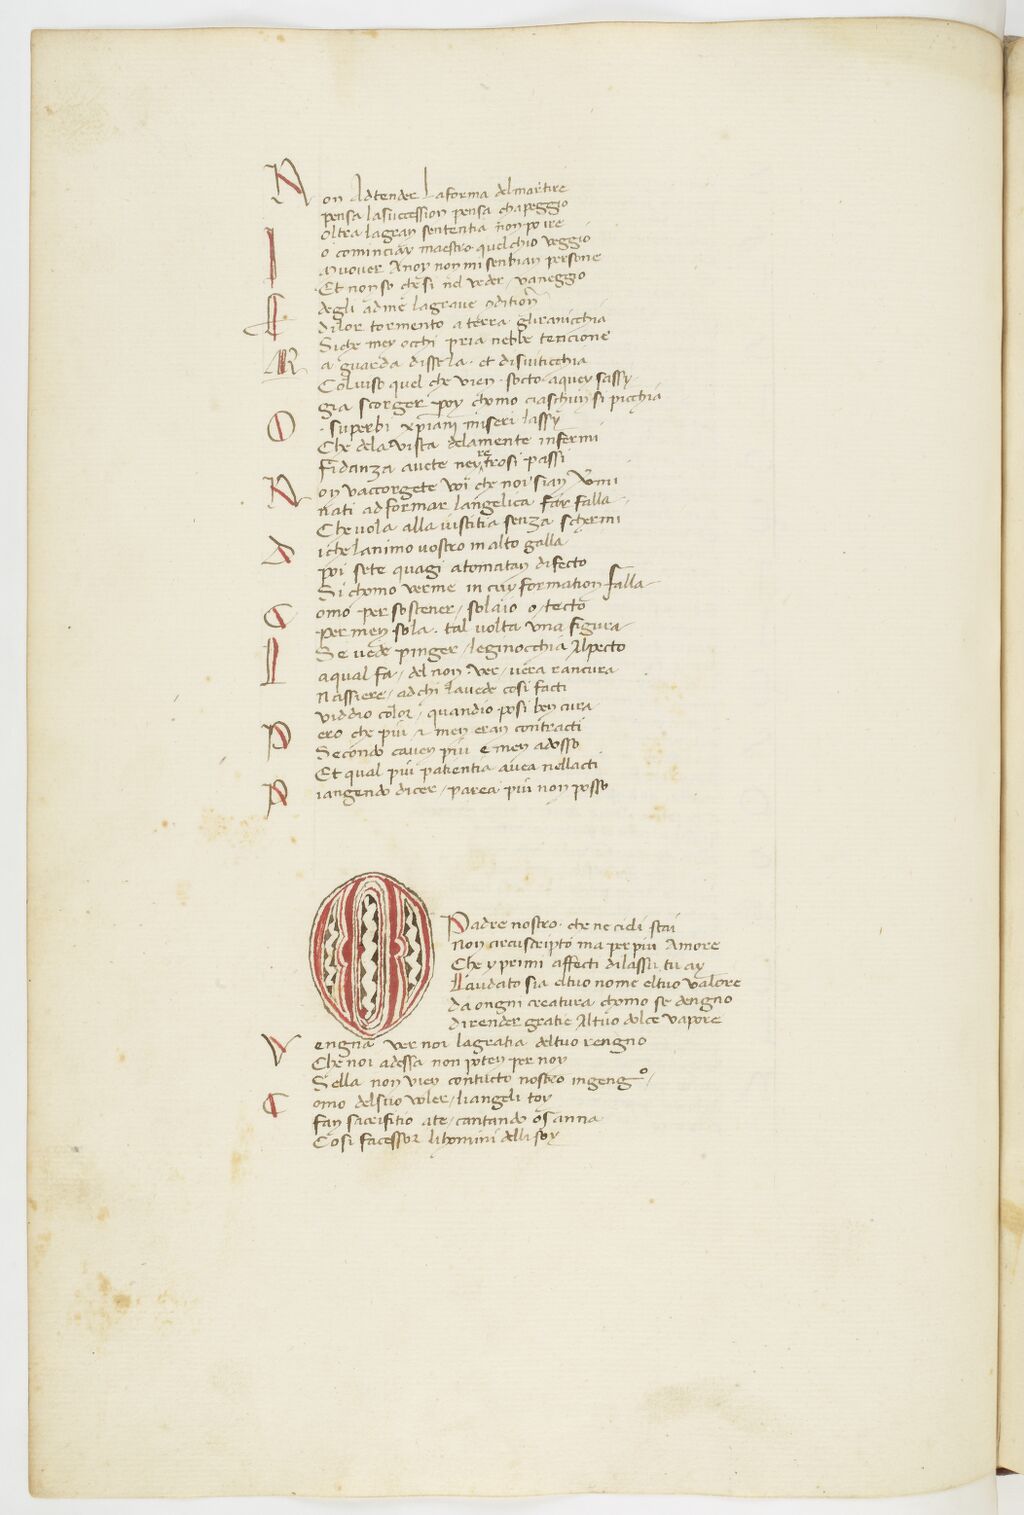 Non Adtender La forma del martire
pensa la succession pensa chapeggio
oltra lagran sententia non po ire
Io cominciay maestro quel chio veggio
muover Anoy non mi senbian persone
Et non so che si nel veder / vaneggio
Et degli ad me lagrave condition
dilor tormento a terra gli ranicchia
Siche mey occhi pria nebbe tencione
Ma guarda disse la · et disviticchia
Colviso quel che vien · socto aquey sassy
gia scorger poy chomo ciaschuy si picchia
O · superbi xpiani miseri lassy
Che dela vista delamente infermi
Fidanza avete ney retrosi passi
Non vaccorgete voi che noi sian vermi
nati ad formar langelica far falla
Che vola alla iustitia senza schermi
Di che lanimo vostro in alto galla
poi sete quagi atomatan difecto
Si chomo verme in cuy formation falla
Como per sostener / solaio o / tecto
per men sola · tal volta una figura
Se vede pinger / leginocchia Alpecto
La qual fa / del non · ver / vera rancura
Nassiere / ad chi lavede cosi facti
viddio color / quandio posi ben cura
Pero che piu et men eran contracti
Secondo cavien piu e men adosso
Et qual piu patientia avea nellacti
Piangendo dicer / parea piu non posso
O Padre nostro · che ne cieli stai
Non circuscripto ma per piu Amore
Che y primi affecti dilassu tu ay
Laudato sia eltuo nome eltuo valore
da ongni creatura chomo se dengno
di render gratie Altuo dolce vapore
Vengna ver noi lagratia deltuo rengno
Che noi adessa non poten per noy
Sella non vien contucto nostro ingengo /
Como delsuo voler / liangeli toy
fan sacrifitio ate / cantando osanna
Cosi facessor lihomini delli soy